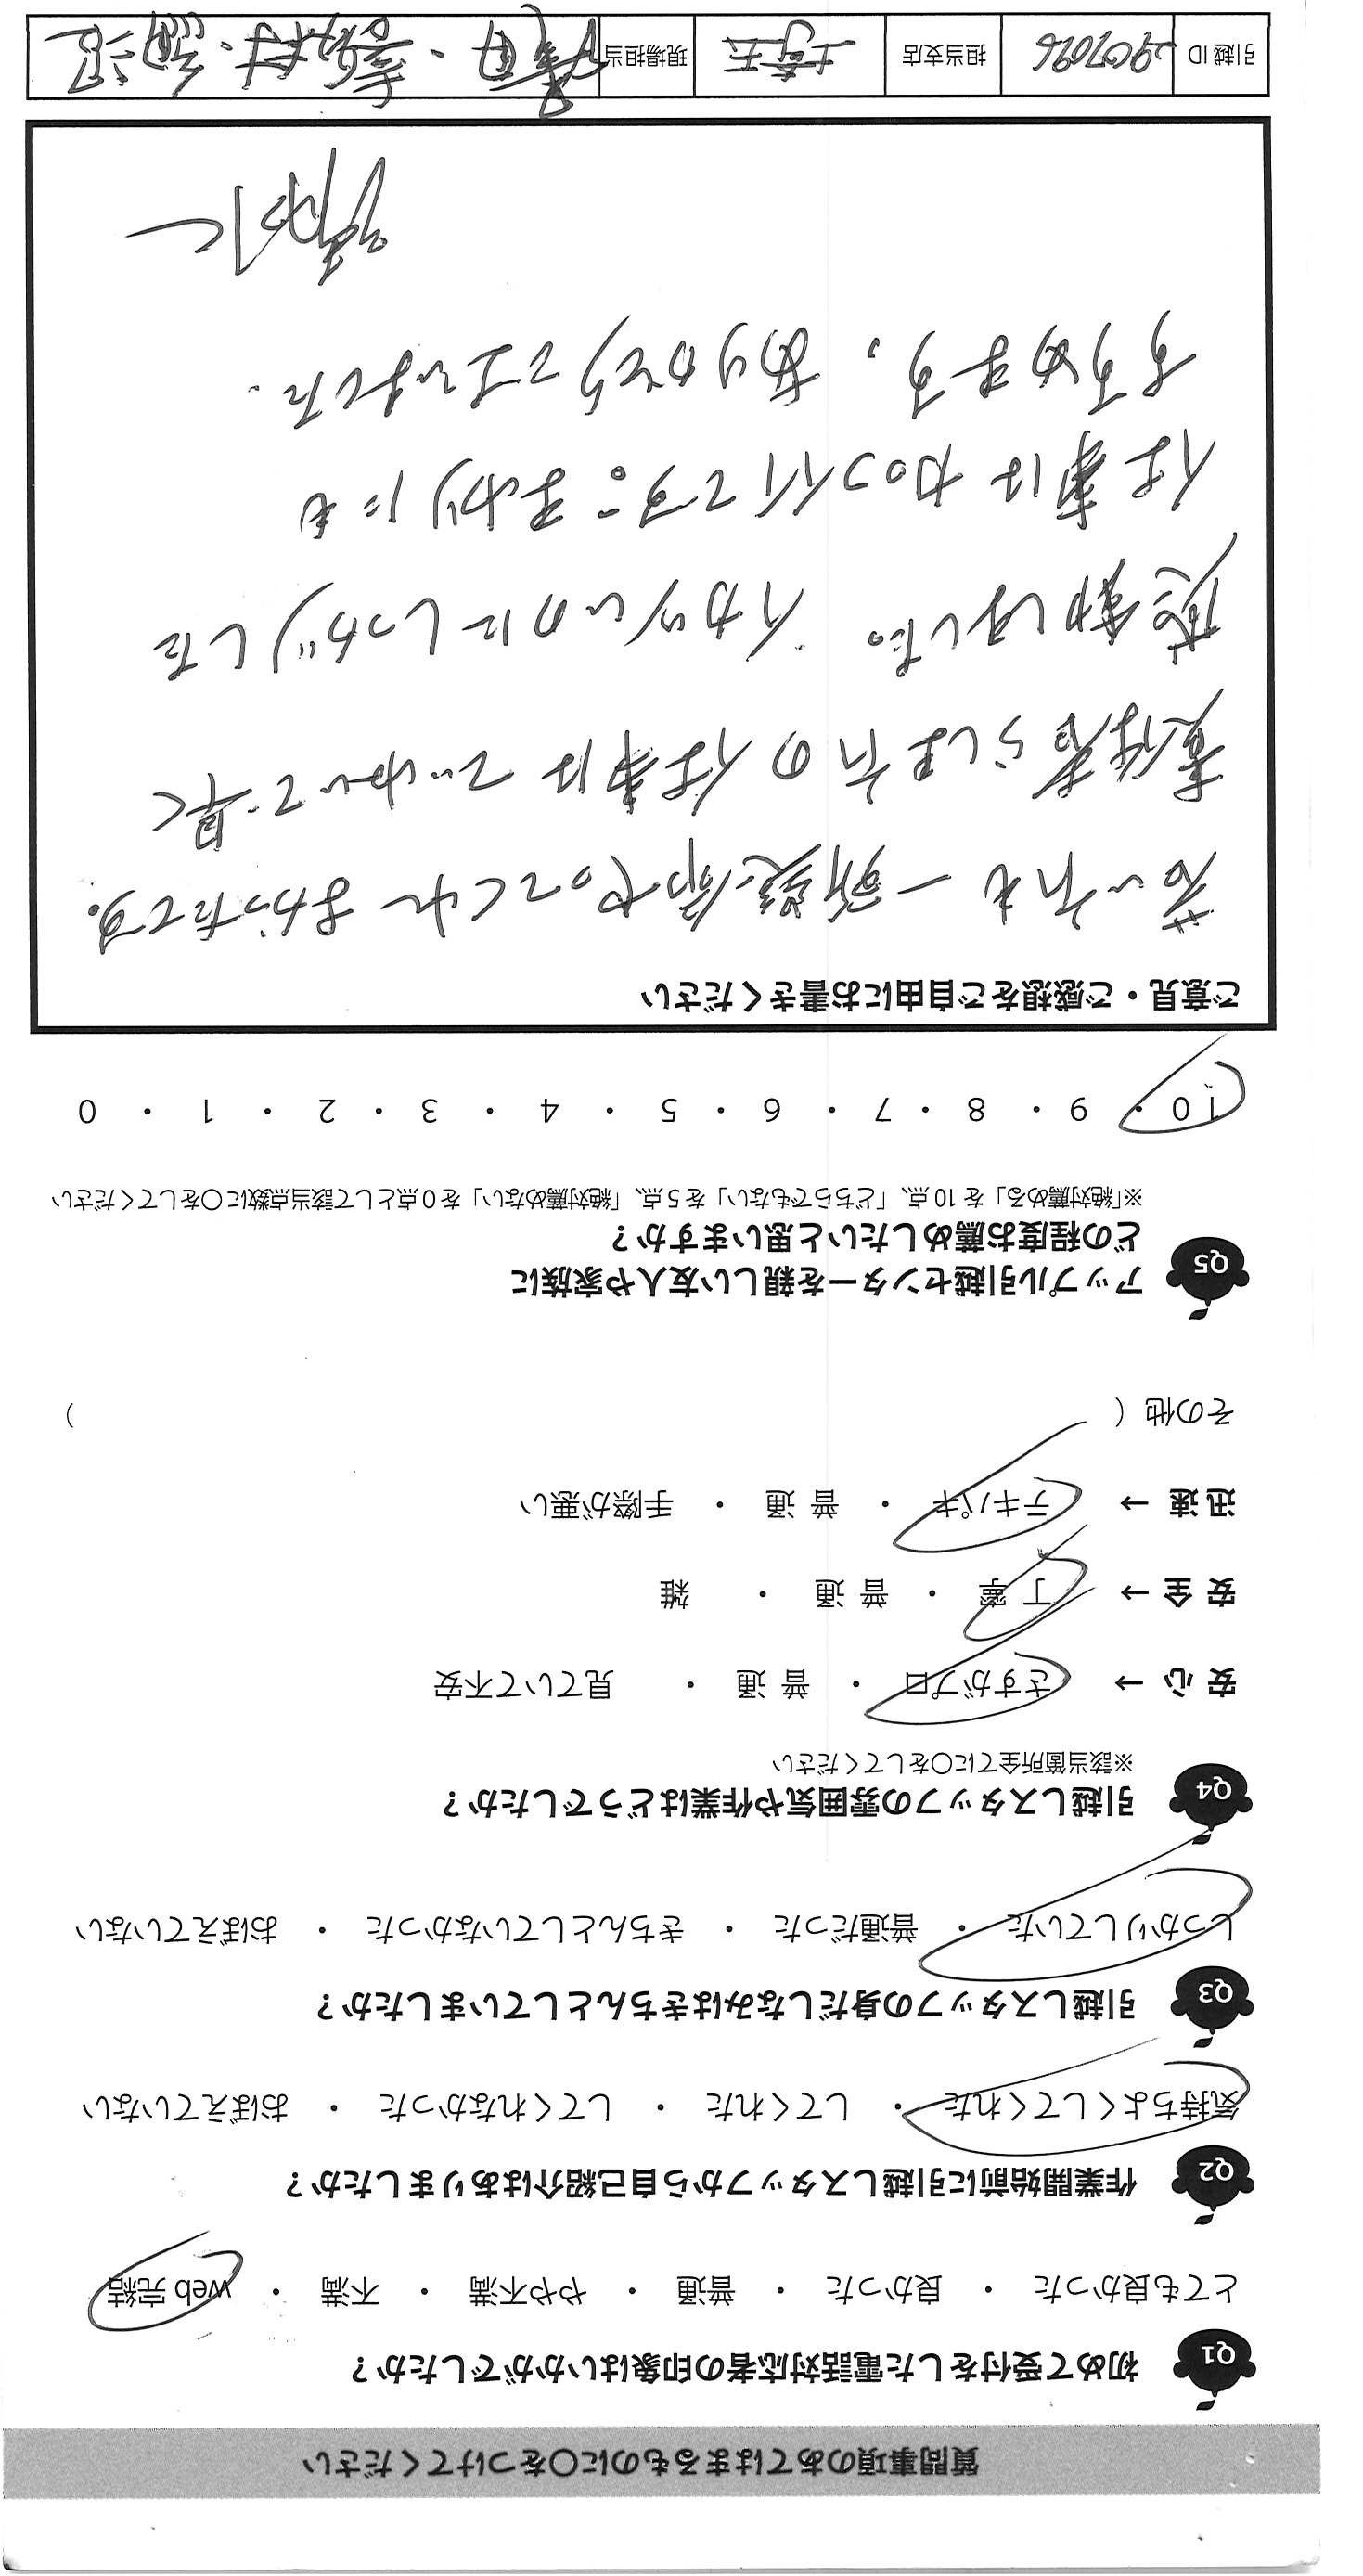 質問事項のあてはまるものに○をつけてください
Q1 初めて受付をした電話対応者の印象はいかがでしたか？
とても良かった ・ 良かった ・ 普通 ・ やや不満 ・ 不満 ・ web 完結
Q2 作業開始前に引越しスタッフから自己紹介はありましたか？
気持ちよくしてくれた ・ してくれた ・ してくれなかった ・ おぼえていない
Q3 引越しスタッフの身だしなみはきちんとしていましたか？
しっかりしていた ・ 普通だった ・ きちんとしていなかった ・ おぼえていない
Q4 引越しスタッフの雰囲気や作業はどうでしたか？
※該当箇所全てに○をしてください
安 心 → さすがプロ ・ 普 通 ・ 見ていて不安
安 全 → 丁 寧 ・ 普 通 ・ 雑
迅 速 → テキパキ ・ 普 通 ・ 手際が悪い
その他（ ）
Q5 アップル引越センターを親しい友人や家族に
どの程度お薦めしたいと思いますか？
※「絶対薦める」を 10 点、「どちらでもない」を 5 点、「絶対薦めない」を 0 点として該当点数に○をしてください
10 ・ 9 ・ 8 ・ 7 ・ 6 ・ 5 ・ 4 ・ 3 ・ 2 ・ 1 ・ 0
ご意見・ご感想をご自由にお書きください
若い方も一所懸命やってくれ よかったです。
責任者らしき方の仕事は ていねいで早く
感動しました。 イカツいのにしっかりした
仕事は カッコイイです。まわりにも
すすめます。ありがとうございました。
引越 ID 2907096 担当支店 埼玉 現場担当